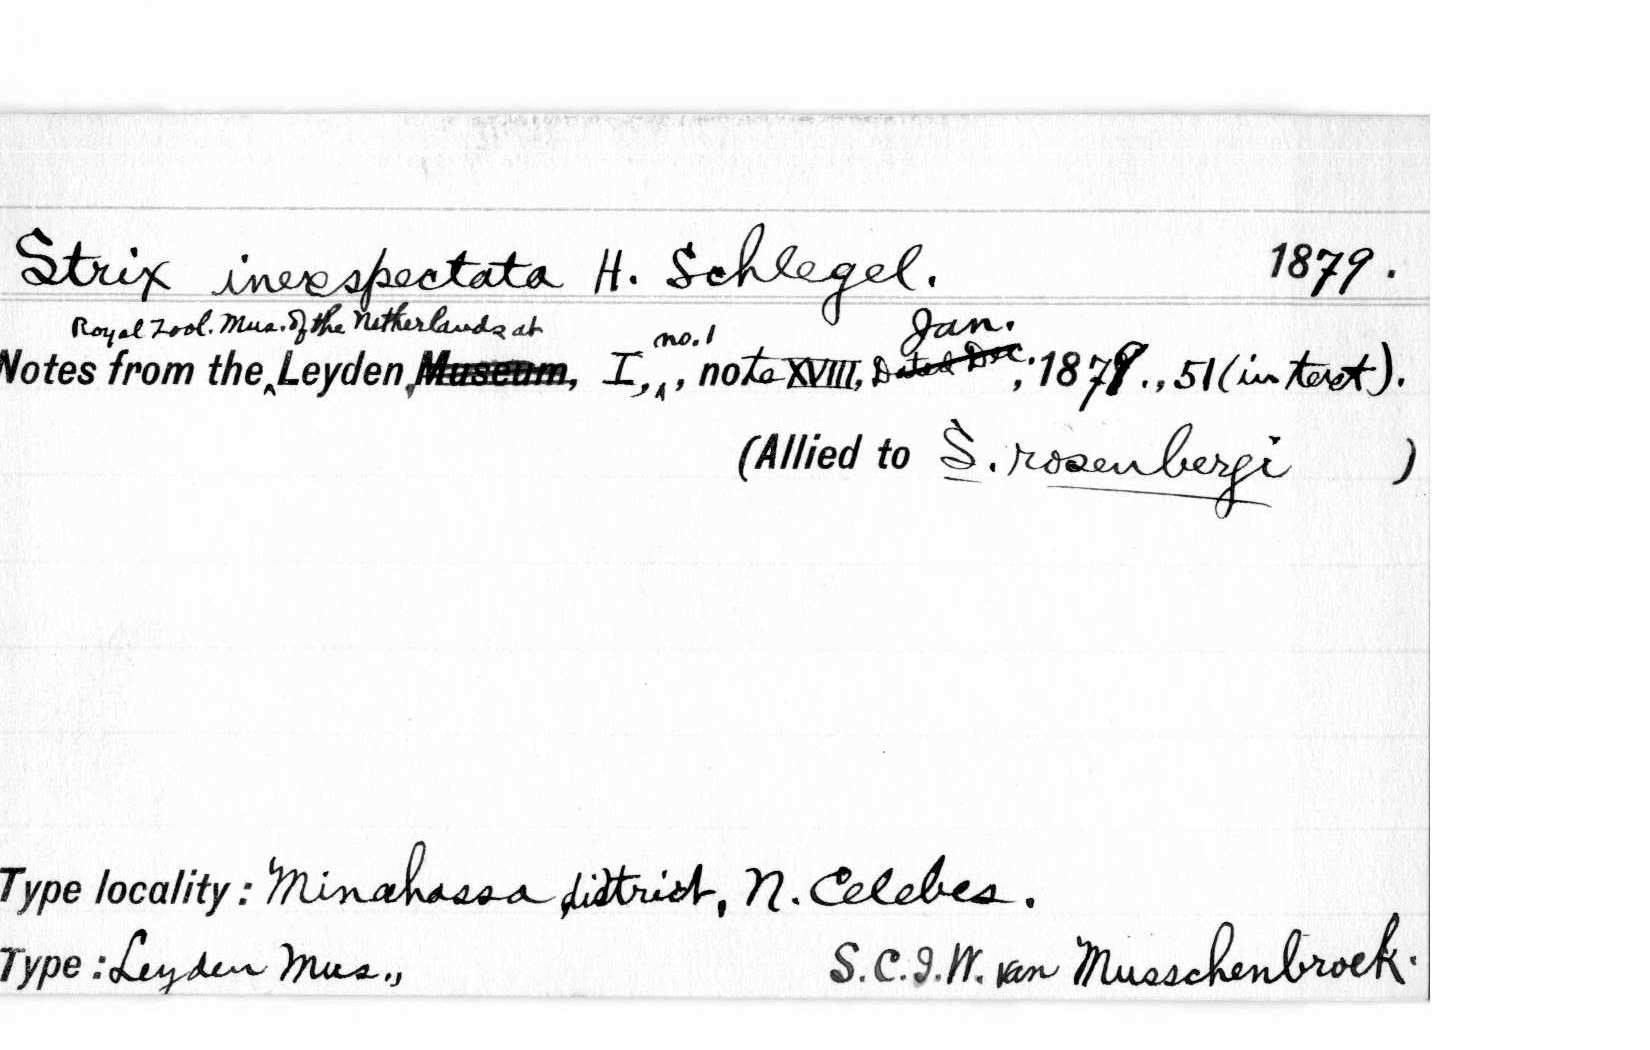 Strix inexspectata H. Schlegel. 1879.
Royal Zool. Mus. of the Netherlands at no. 1 Jan.
Notes from the Leyden, Museum, I, , note XVIII, Dated Dec. , 1879., 51 (in text).
(Allied to S. rosenbergi )
Type locality: Minahassa district, N. Celebes.
Type: Leyden Mus., S.C.J.W. van Musschenbroek.